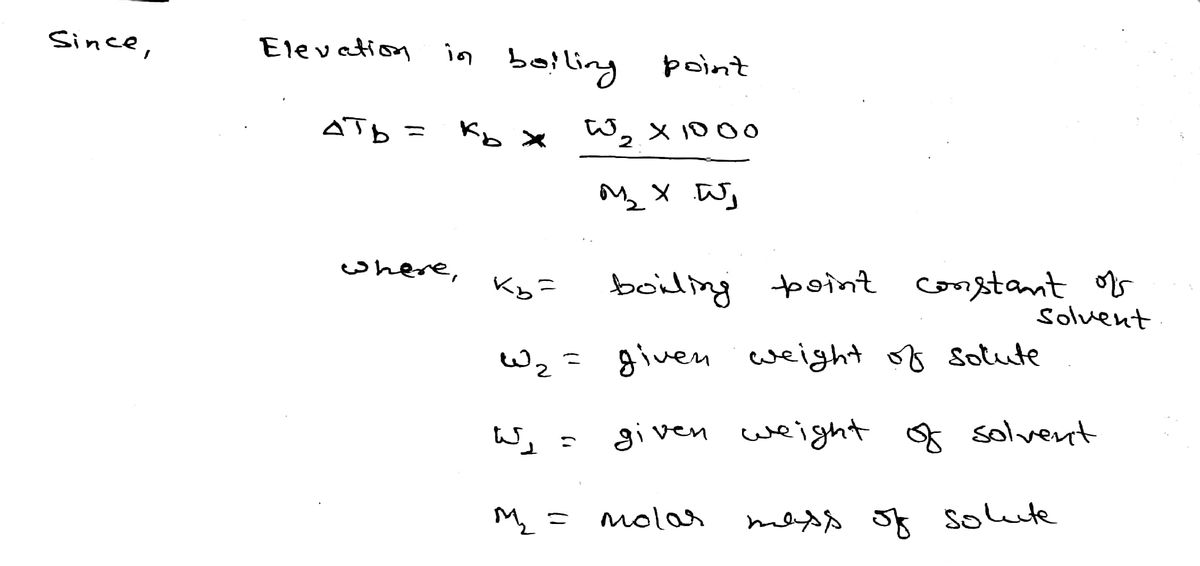 Since, Elevation in boiling point
ΔTb = Kb × W₂ × 1000
M₂ × W₁
where, Kb = boiling point constant of
solvent
W₂ = given weight of solute
W₁ = given weight of solvent
M₂ = molar mass of solute